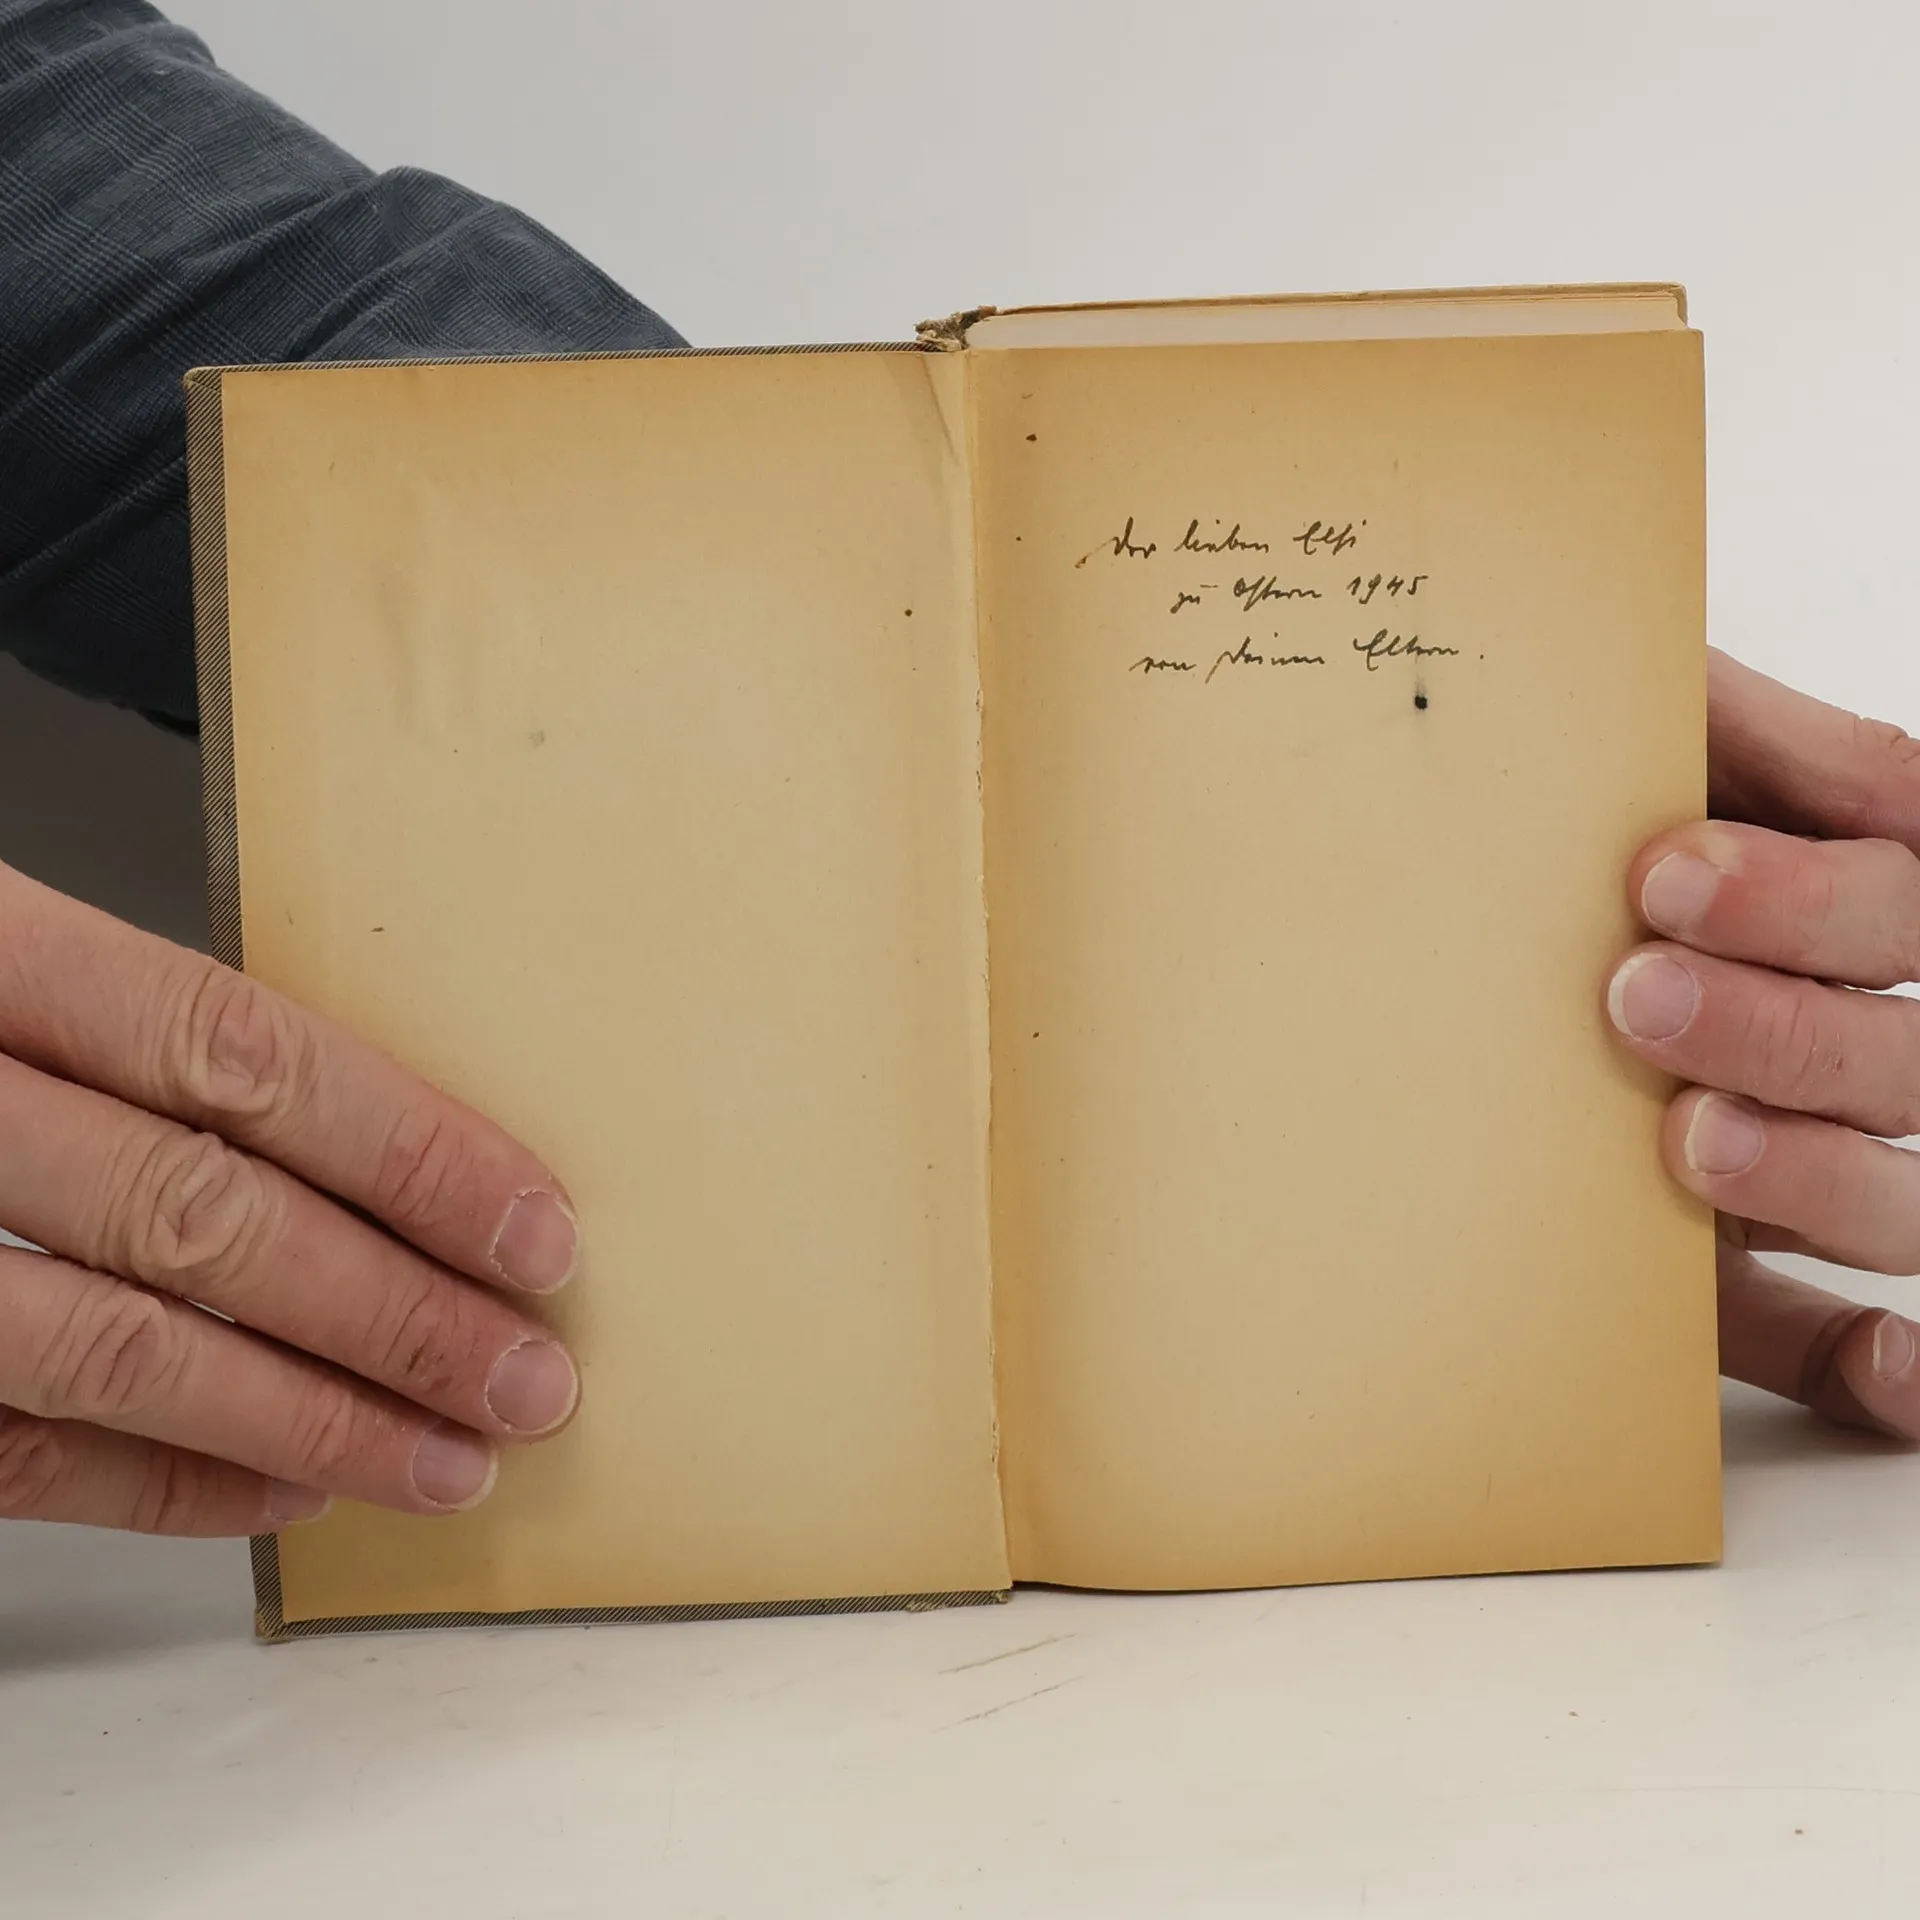 Der lieben Elsi
zu Ostern 1945
von Deinen Eltern.